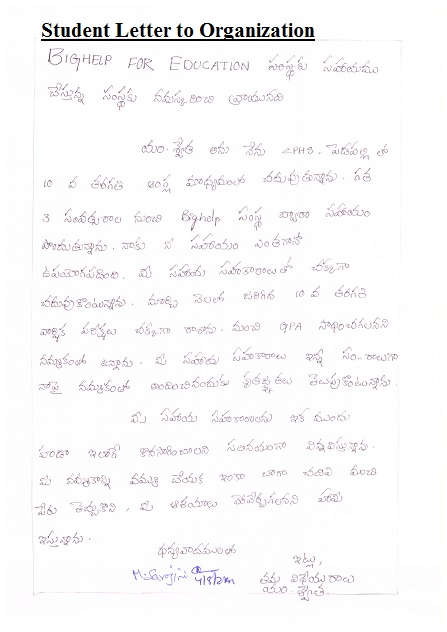 Student Letter to Organization
BIGHELP FOR EDUCATION సంస్థకు సహాయము
చేస్తున్న సంస్థకు నమస్కరించి వ్రాయునది
యం. శ్వేత అను నేను ZPHS, పెదపల్లి లో
10 వ తరగతి ఆంగ్ల మాధ్యమంలో చదువుతున్నాను. గత
3 సంవత్సరాల నుంచి Bighelp సంస్థ ద్వారా సహాయం
పొందుతున్నాను. నాకు ఈ సహాయం ఎంతగానో
ఉపయోగపడింది. మీ సహాయ సహకారాలతో చక్కగా
చదువుకొంటున్నాను. మార్చి నెలలో జరిగిన 10 వ తరగతి
వార్షిక పరీక్షలు చక్కగా రాశాను. మంచి GPA సాధించగలనని
నమ్మకంతో ఉన్నాను. మీ సహాయ సహకారాలు ఇన్ని సం..రాలుగా
నాపై నమ్మకంతో అందించినందుకు కృతజ్ఞతలు తెలుపుకొంటున్నాను.
మీ సహాయ సహకారాలను ఇక ముందు
కుండా ఇలాగే కొనసాగించాలని సవినయంగా విన్నవిస్తున్నాను.
మీ నమ్మకాన్ని వమ్ము చేయక ఇంకా బాగా చదివి మంచి
పేరు తెచ్చుకొని, మీ ఆశయాలు నెరవేర్చగలనని హామీ
ఇస్తున్నాను.
ధన్యవాదములతో
ఇట్లు,
M. Sarojini
తమ విధేయురాలు
యం. శ్వేత.